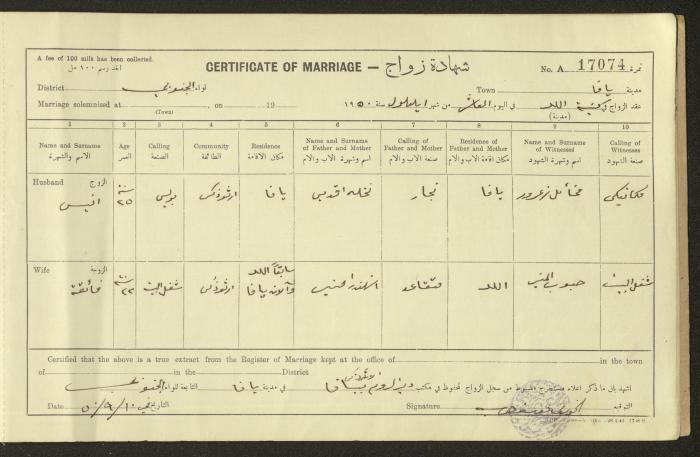 A fee of 100 mils has been collected.
اخذ رسم ١٠٠ مل
CERTIFICATE OF MARRIAGE — شهادة زواج
No. A 17074 نمرة
District لواء الجنوبي
Town مدينة يافا
Marriage solemnised at , on 19
(Town)
عقد الزواج في كنيسة اللد في اليوم العاشر من شهر ايلول سنة ١٩٥٠
(مدينة)
1 2 3 4 5 6 7 8 9 10
Name and Surname Age Calling Community Residence Name and Surname of Father and Mother Calling of Father and Mother Residence of Father and Mother Name and Surname of Witnesses Calling of Witnesses
الاسم والشهرة العمر الصنعة الطائفة مكان الاقامة اسم وشهرة الاب والام صنعة الاب والام مكان اقامة الاب والام اسم وشهرة الشهود صنعة الشهود
Husband الزوج
انيس سنة ٢٥ بوليس ارثوذكس يافا نخله نجار يافا مخائيل زعرور مكانيكي
Wife الزوجة
فائقة سنة ٢٢ شغل البيت ارثوذكس سابقًا اللد والآن يافا متقاعد اللد شغل البيت
Certified that the above is a true extract from the Register of Marriage kept at the office of in the town
of in the District
اشهد بان ما ذكر اعلاه مستخرج مضبوط من سجل الزواج المحفوظ في مكتب يافا في مدينة يافا التابعة للواء الجنوبي
Date التاريخ في ٥٠/٩/١٠
Signature الخوري التوقيع